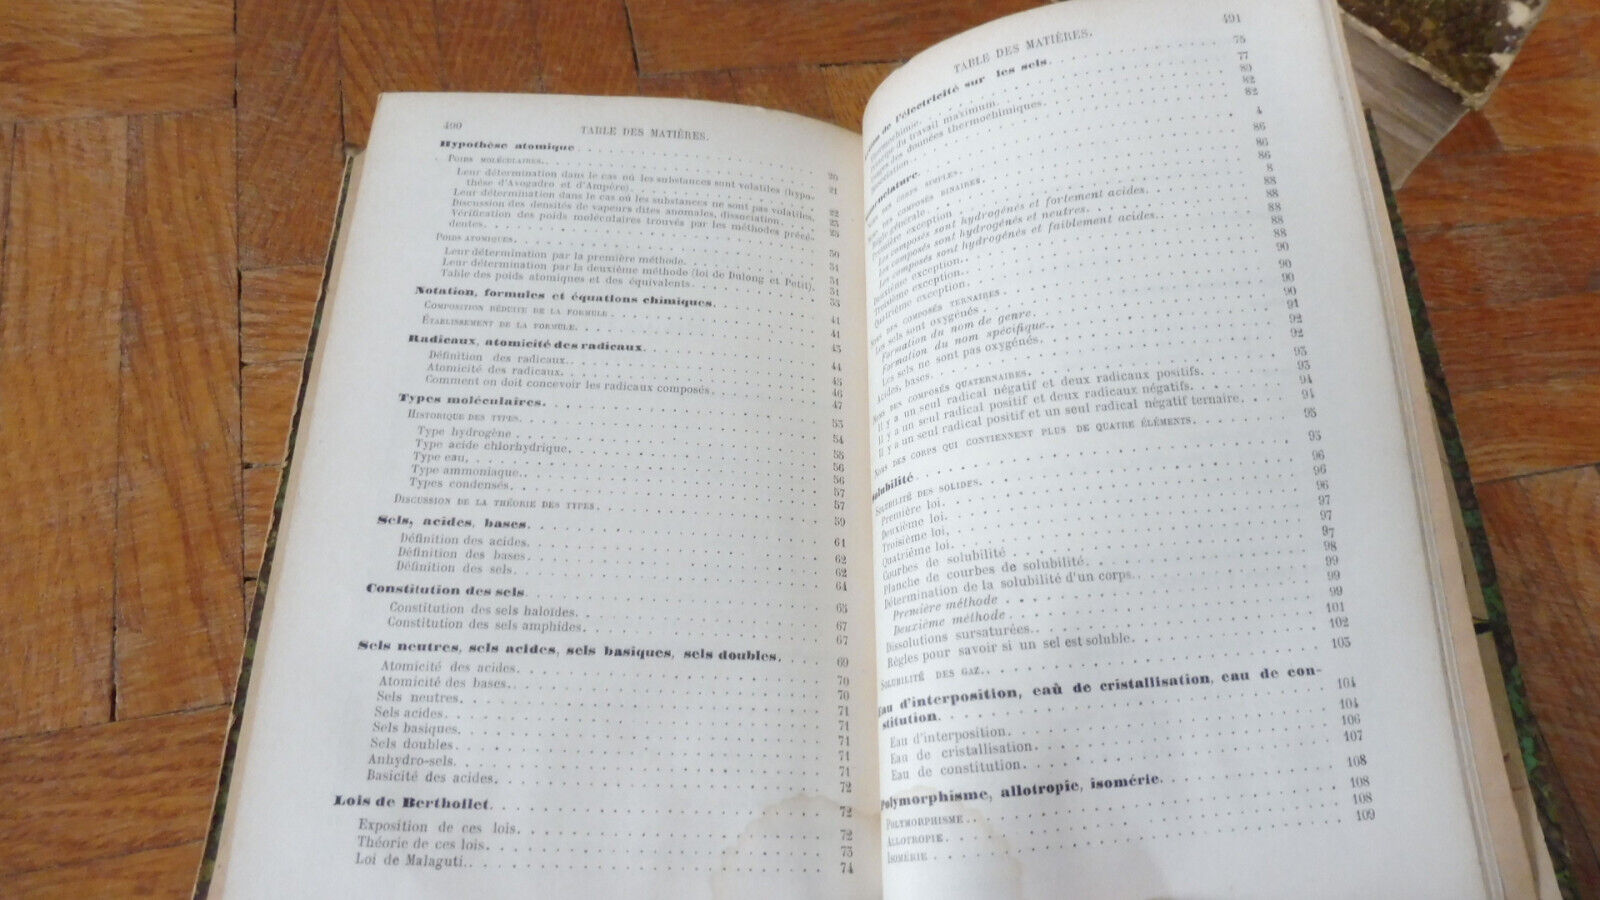 490
TABLE DES MATIÈRES.
Hypothèse atomique 20
POIDS MOLÉCULAIRES. 21
Leur détermination dans le cas où les substances sont volatiles (hypo-
thèse d'Avogadro et d'Ampère). 22
Leur détermination dans le cas où les substances ne sont pas volatiles, 23
Discussion des densités de vapeurs dites anomales, dissociation. 25
Vérification des poids moléculaires trouvés par les méthodes précé-
dentes.
POIDS ATOMIQUES.
Leur détermination par la première méthode.
Leur détermination par la deuxième méthode (loi de Dulong et Petit),
Table des poids atomiques et des équivalents.
Notation, formules et équations chimiques.
COMPOSITION DÉDUITE DE LA FORMULE 41
ÉTABLISSEMENT DE LA FORMULE. 41
Radicaux, atomicité des radicaux. 43
Définition des radicaux. 44
Atomicité des radicaux. 45
Comment on doit concevoir les radicaux composés 46
Types moléculaires. 47
HISTORIQUE DES TYPES. 53
Type hydrogène 54
Type acide chlorhydrique. 55
Type eau. 56
Type ammoniaque. 56
Types condensés. 57
DISCUSSION DE LA THÉORIE DES TYPES. 57
Sels, acides, bases. 59
Définition des acides. 61
Définition des bases. 62
Définition des sels. 62
Constitution des sels 64
Constitution des sels haloïdes. 65
Constitution des sels amphides. 67
Sels neutres, sels acides, sels basiques, sels doubles. 69
Atomicité des acides. 70
Atomicité des bases. 70
Sels neutres. 71
Sels acides. 71
Sels basiques. 71
Sels doubles 71
Anhydro-sels. 71
Basicité des acides. 72
Lois de Berthollet. 72
Exposition de ces lois. 72
Théorie de ces lois. 73
Loi de Malaguti. 74
491
TABLE DES MATIÈRES.
de l'électricité sur les sels. 75
77
du travail maximum. 80
des données thermochimiques. 82
82
4
CORPS SIMPLES. 86
COMPOSÉS BINAIRES 86
Règle générale. 86
Première exception 8
Les composés sont hydrogénés et fortement acides. 88
Les composés sont hydrogénés et neutres. 88
Les composés sont hydrogénés et faiblement acides. 88
Deuxième exception. 88
Troisième exception. 90
Quatrième exception. 90
NOMS DES COMPOSÉS TERNAIRES 90
Les sels sont oxygénés 90
Formation du nom de genre. 91
Formation du nom spécifique. 92
Les sels ne sont pas oxygénés. 92
Acides, bases. 93
NOMS DES COMPOSÉS QUATERNAIRES. 94
Il y a un seul radical négatif et deux radicaux positifs. 94
Il y a un seul radical positif et deux radicaux négatifs.
Il y a un seul radical positif et un seul radical négatif ternaire. 95
NOMS DES CORPS QUI CONTIENNENT PLUS DE QUATRE ÉLÉMENTS.
Solubilité 95
SOLUBILITÉ DES SOLIDES. 96
Première loi. 96
Deuxième loi. 96
Troisième loi, 97
Quatrième loi. 97
Courbes de solubilité 97
Planche de courbes de solubilité. 98
Détermination de la solubilité d'un corps. 99
Première méthode 99
Deuxième méthode 99
Dissolutions sursaturées. 101
Règles pour savoir si un sel est soluble. 102
SOLUBILITÉ DES GAZ. 103
Eau d'interposition, eau de cristallisation, eau de con-
stitution. 104
Eau d'interposition. 104
Eau de cristallisation. 106
Eau de constitution. 107
Polymorphisme, allotropie, isomérie. 108
POLYMORPHISME 108
ALLOTROPIE. 108
ISOMÉRIE 109